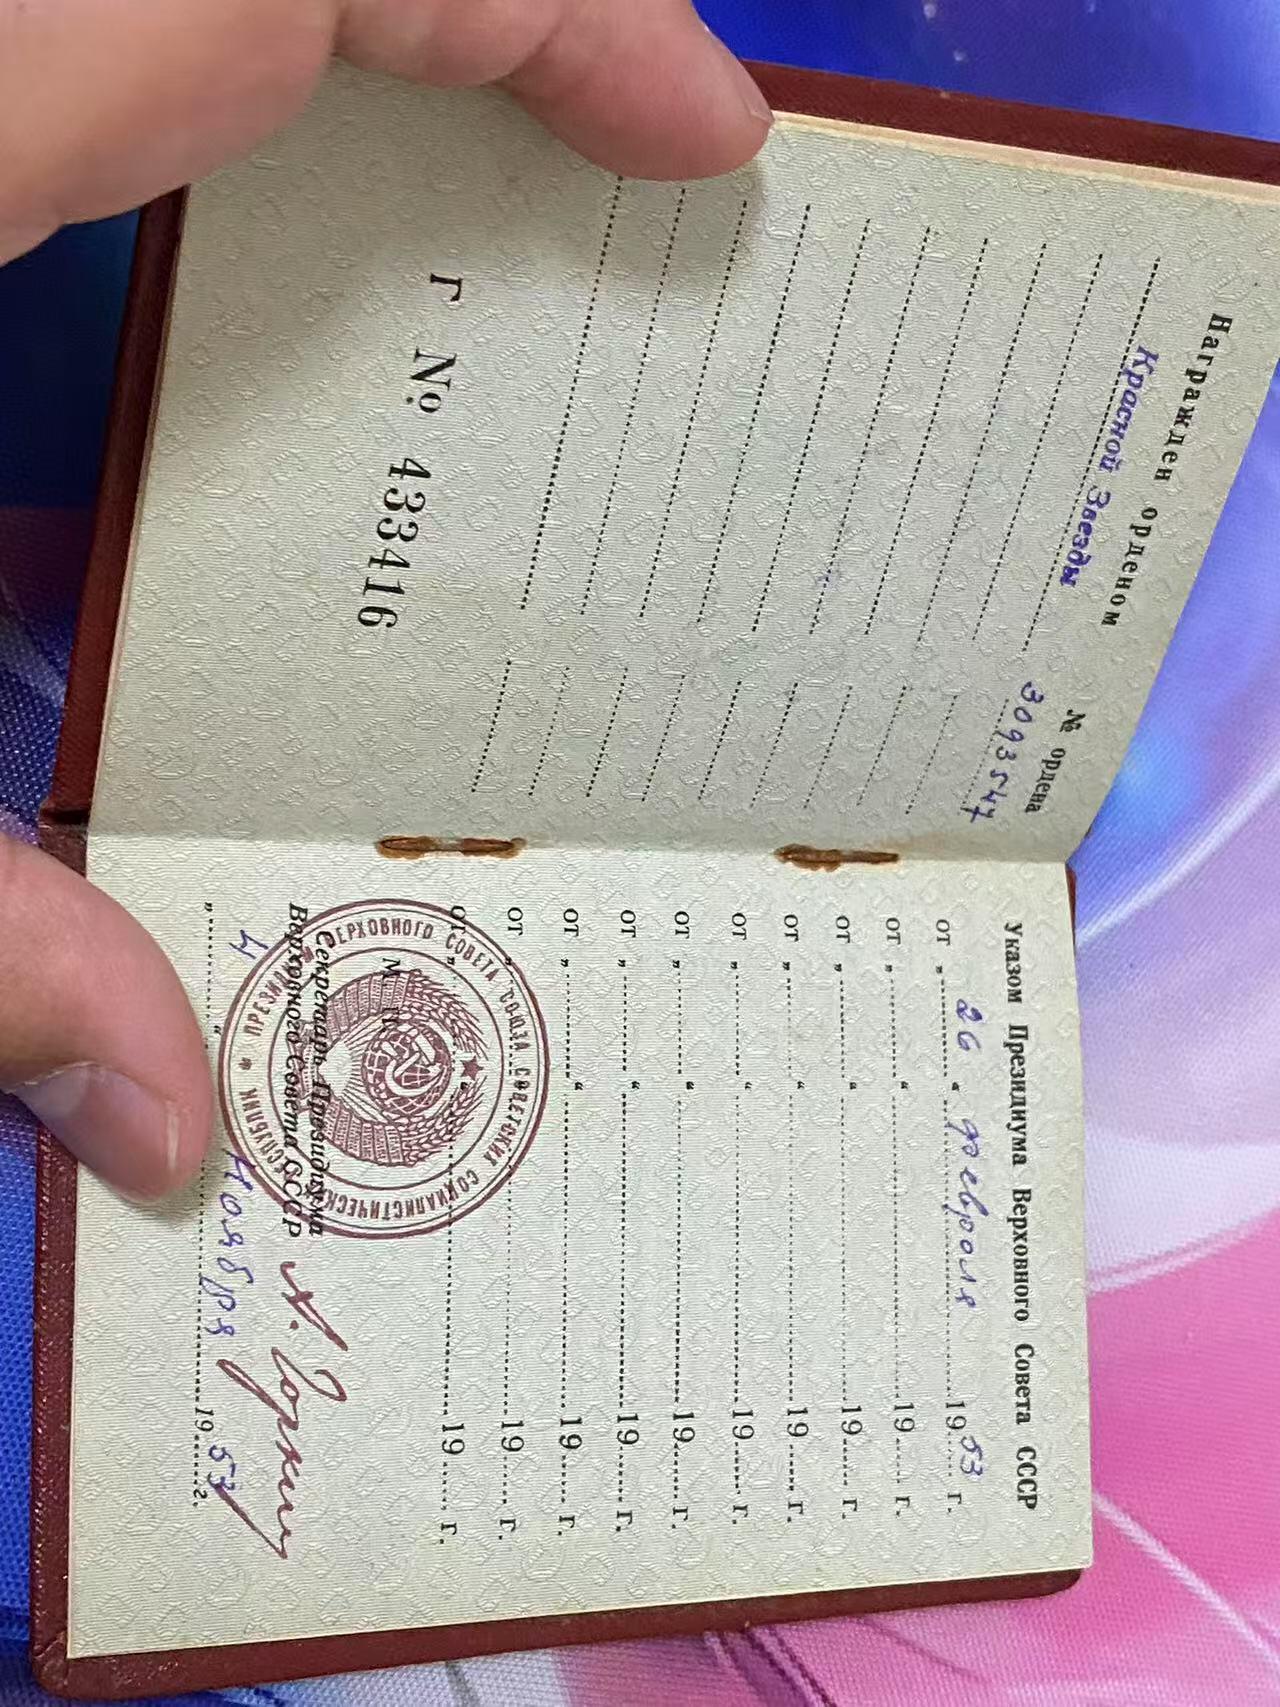 Награжден орденом
№ ордена
Красной Звезды
3093547
Г № 433416
Указом Президиума Верховного Совета СССР
от „ 26 “ февраля 1953 г.
от „ “ 19 г.
от „ “ 19 г.
от „ “ 19 г.
от „ “ 19 г.
от „ “ 19 г.
от „ “ 19 г.
от „ “ 19 г.
от „ 19 г.
от „ 19 г.
М. П.
Секретарь Президиума
Верховного Совета СССР
А. Горкин
„ 4 “ ноября 1953 г.
ВЕРХОВНОГО СОВЕТА СОЮЗА СОВЕТСКИХ СОЦИАЛИСТИЧЕСКИХ